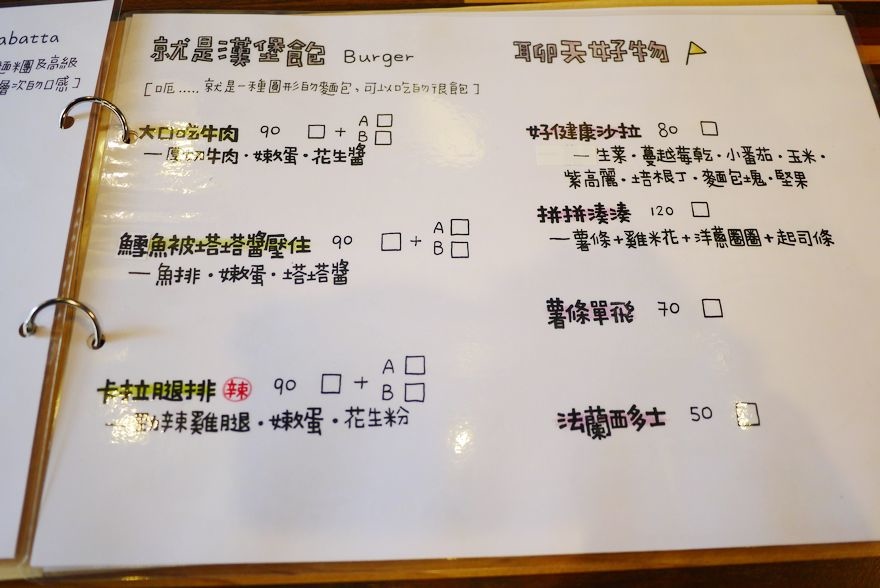 abatta
麵糰及高級
層次的口感]
就是漢堡飽 Burger
[呃.....就是一種圓形的麵包,可以吃的很飽]
大口吃牛肉 90 □ + A □ B □
—厚切牛肉・嫩蛋・花生醬
鱈魚被塔塔醬壓住 90 □ + A □ B □
—魚排・嫩蛋・塔塔醬
卡拉腿排 辣 90 □ + A □ B □
辣雞腿・嫩蛋・花生粉
聊天好物
好健康沙拉 80 □
—生菜・蔓越莓乾・小番茄・玉米・
紫高麗・培根丁・麵包塊・堅果
拼拼湊湊 120 □
—薯條+雞米花+洋蔥圈圈+起司條
薯條單飛 70 □
法蘭西多士 50 □